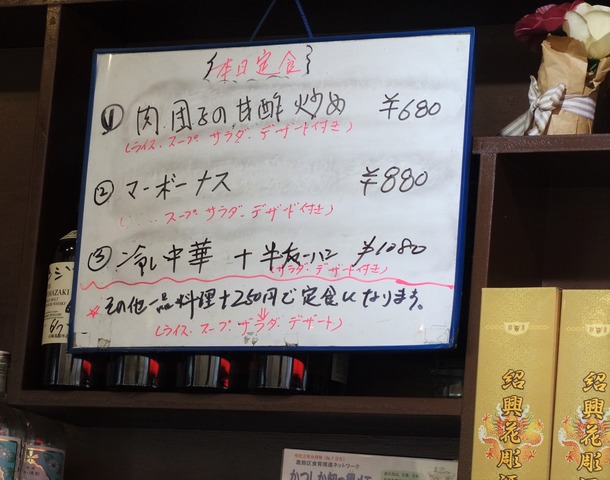 本日定食
① 肉団子の甘酢炒め ¥680
(ライス.スープ.サラダ.デザート付き)
② マーボーナス ¥880
(..... スープ サラダ.デザート付き)
③ 冷し中華 + 半炒飯 ¥1080
(サラダ.デザート付き)
*その他一品料理+250円で定食になります。
(ライス.スープ サラダ.デザート)
AZAKI
紹興花彫酒
紹興花彫酒
葛飾区食育推進ネットワーク